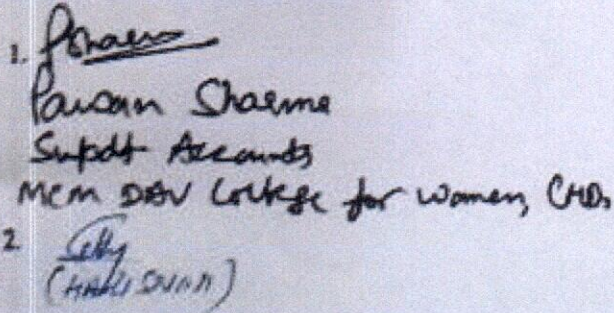 1. PSharma
Pawan Sharma
Supdt Accounts
MCM DAV College for Women, CHD.
2.